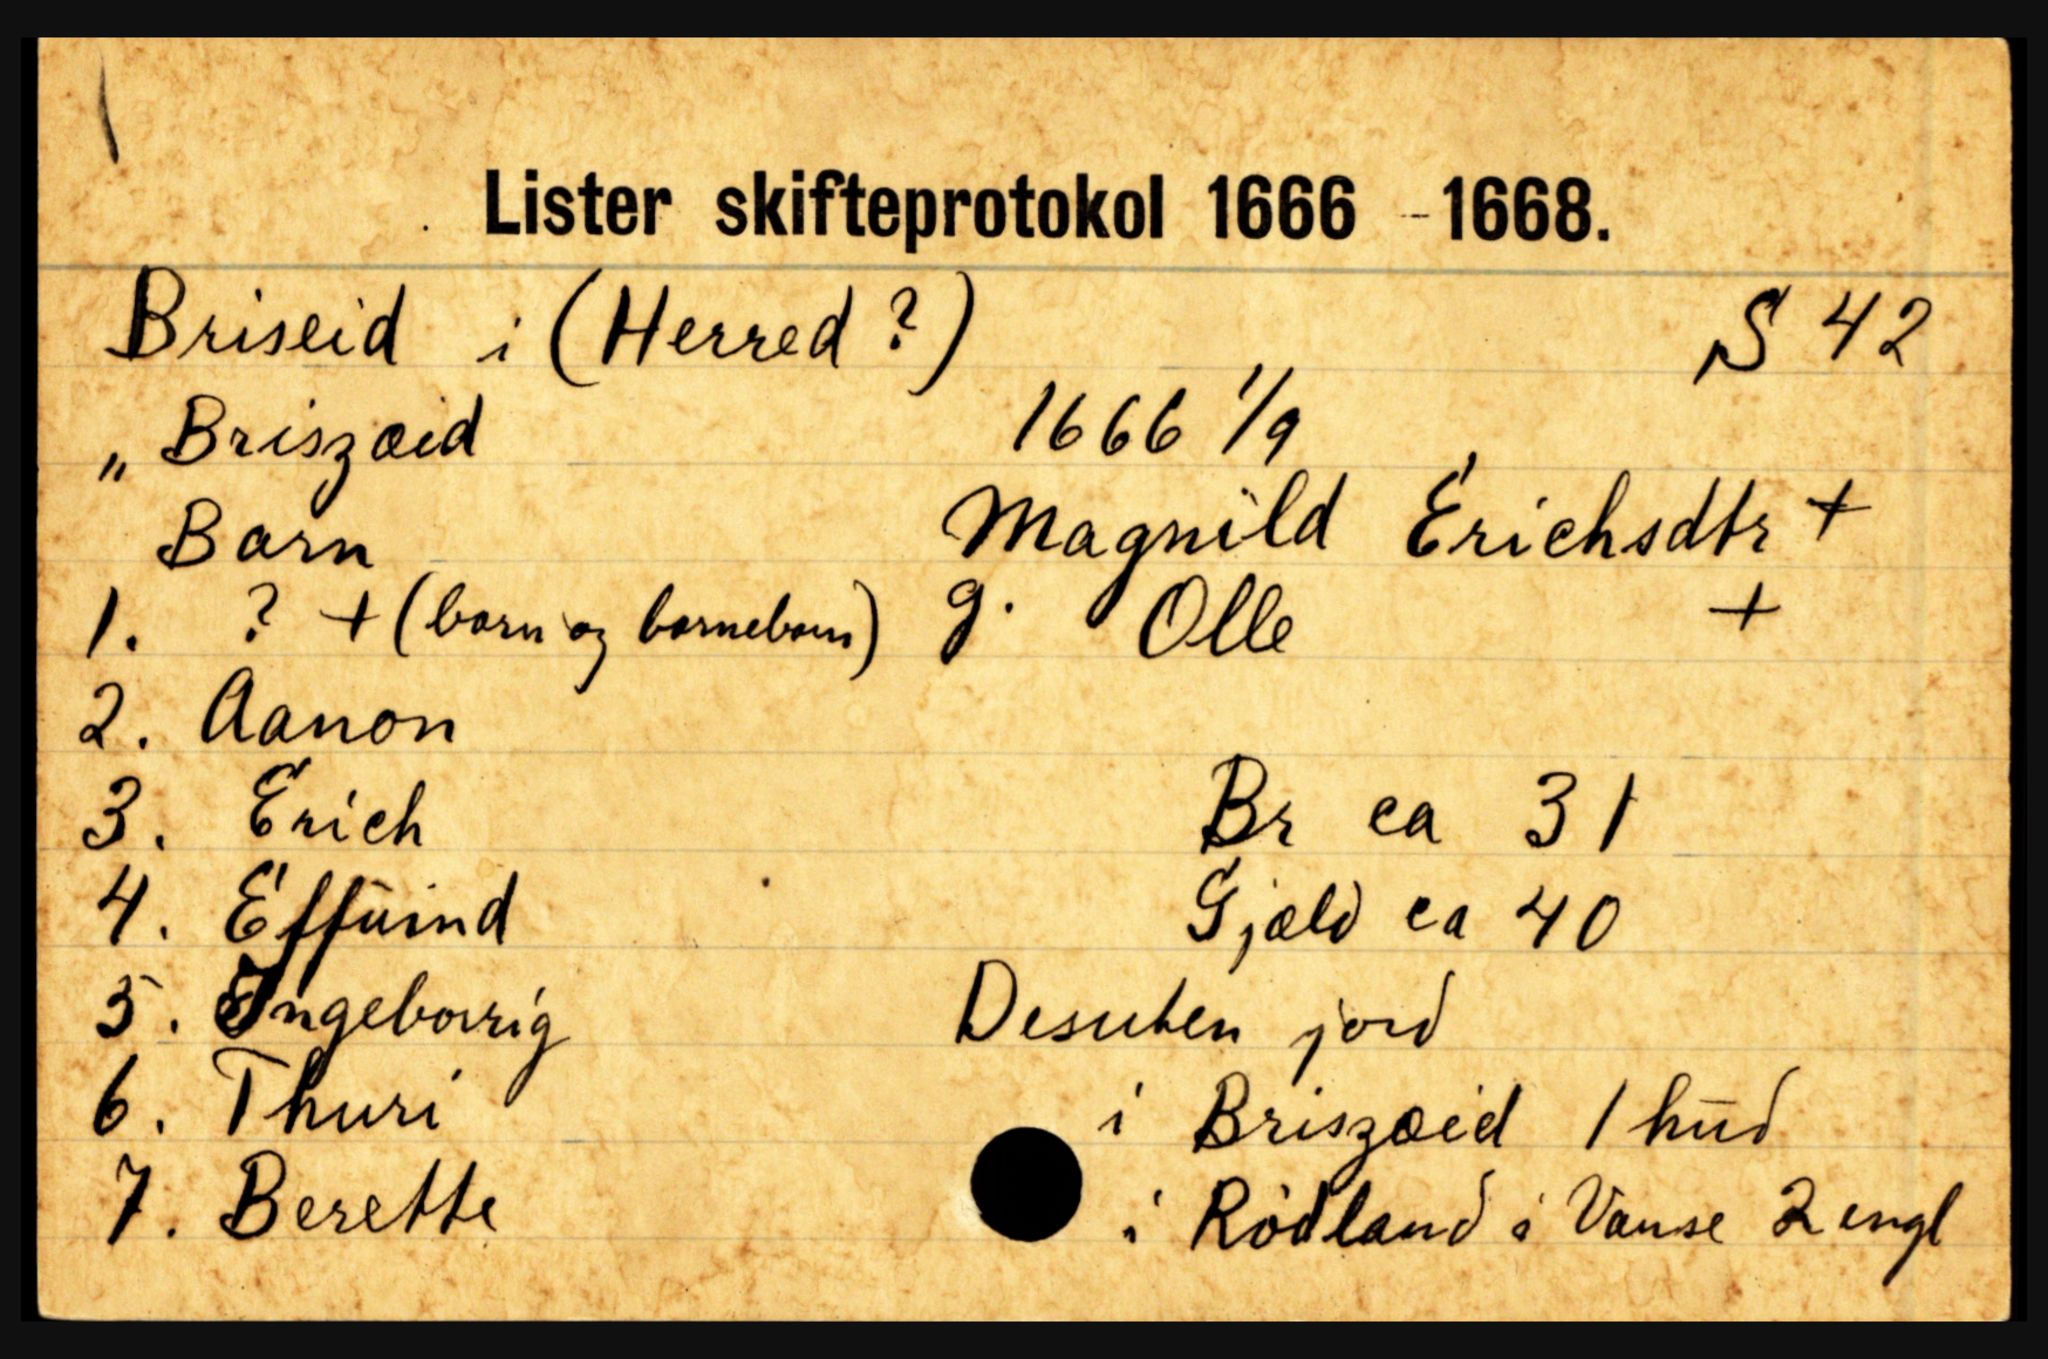 Lister skifteprotokol 1666 - 1668.
Briseid i (Herred ?) S 42
„ Briszæid 1666 1/9
Barn Magnild Erichsdtr +
1. ? + (barn og barnebarn) g. Olle +
2. Aanon
3. Erich Br ca 31
4. Effuind Gjæld ca 40
5. Ingeborrig Desuten jord
6. Thuri i Briszæid 1 hud
7. Berette i Rødland i Vanse 2 engl